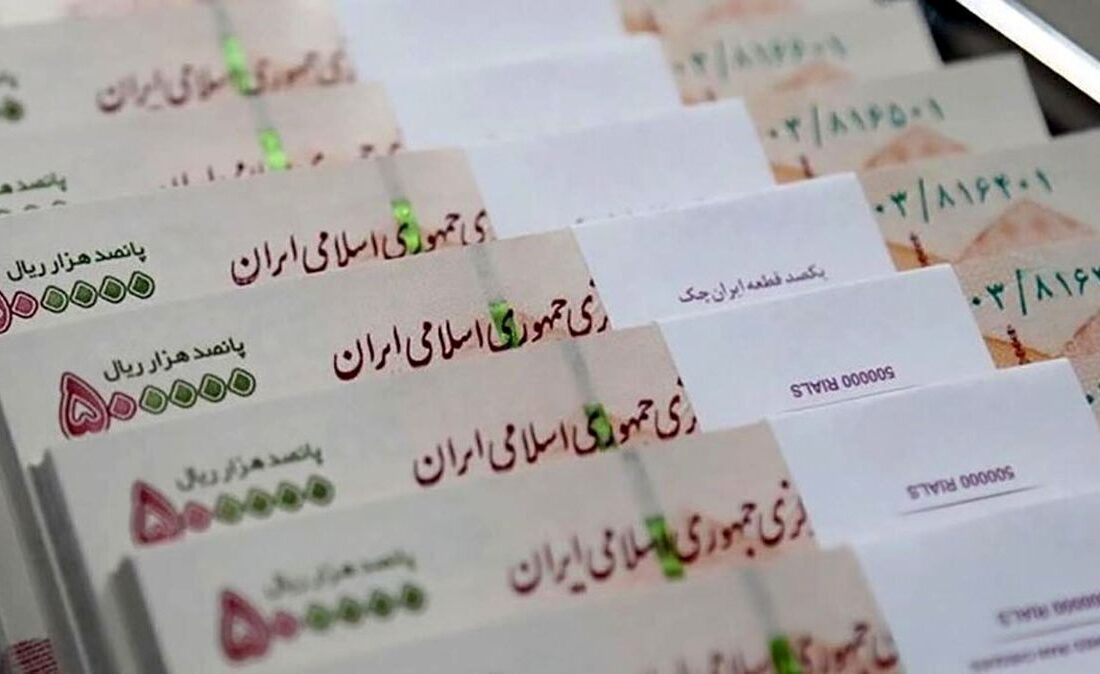 ۰۳/۸۱۶۶۰۱
جمهوری اسلامی ایران
۰۳/۸۱۶۵۰۱
پانصد هزار ریال
۰۳/۸۱۶۴۰۱
جمهوری اسلامی ایران
پانصد هزار ریال
۵۰۰۰۰۰
یکصد قطعه ایران چک
۰۳/۸۱۶
جمهوری اسلامی ایران
پانصد هزار ریال
۵۰۰۰۰۰
500000 RIALS
جمهوری اسلامی ایران
پانصد هزار ریال
۵۰۰۰۰۰
500000 RIALS
جمهوری اسلامی ایران
پانصد هزار ریال
۵۰۰۰۰۰
500000 RIALS
جمهوری اسلامی